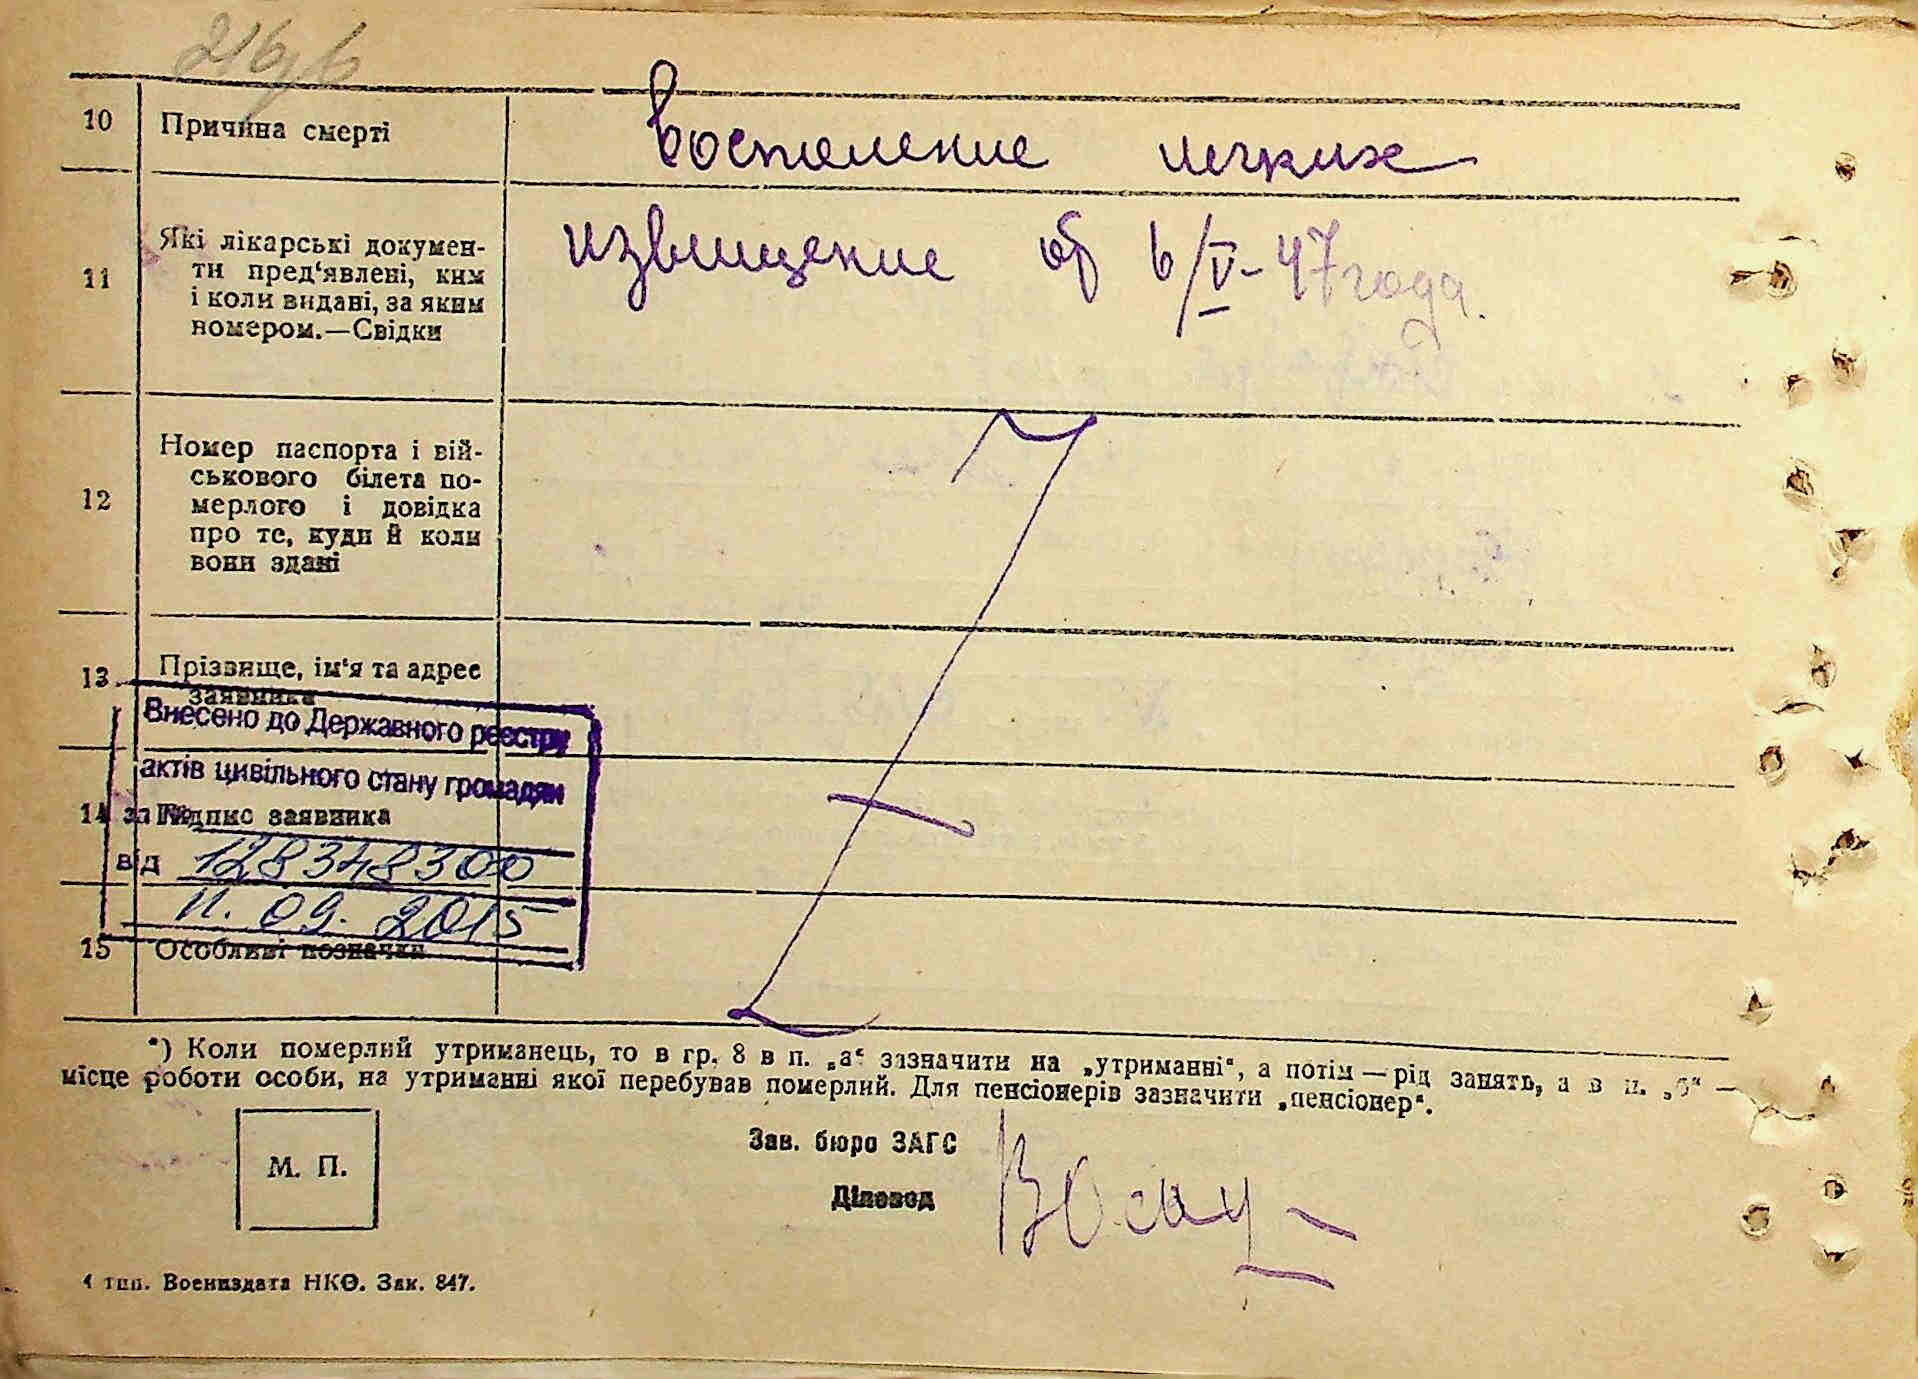 10 Причина смерті воспаление легких
11 Які лікарські докумен-
ти пред‘явлені, ким
і коли видані, за яким
номером.—Свідки
извещение об 6/V-47 года.
12 Номер паспорта і вій-
ськового білета по-
мерлого і довідка
про те, куди й коли
вони здані
13 Прізвище, ім‘я та адрес
заявника
Внесено до Державного реєстру
актів цивільного стану громадян
14 Підпис заявника
за №
від 128348300
11. 09. 2015
15 Особливі позначки
*) Коли померлий утриманець, то в гр. 8 в п. „а“ зазначити на „утриманні“, а потім — рід занять, а в п. „б“ —
місце роботи особи, на утриманні якої перебував померлий. Для пенсіонерів зазначити „пенсіонер“.
Зав. бюро ЗАГС
М. П.
Діловод
1 тип. Воениздата НКО. Зак. 847.